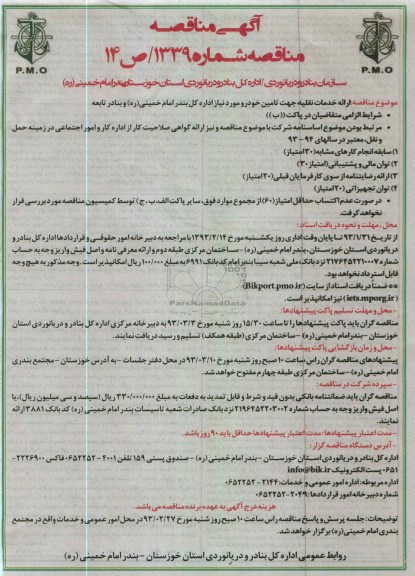 آگهی مناقصه
مناقصه شماره ۱۳۳۹/ص۱۴
P.M.O
P.M.O
سازمان بنادر و دریانوردی / اداره کل بنادر و دریانوردی استان خوزستان بندر امام خمینی (ره)
موضوع مناقصه: ارائه خدمات نقلیه جهت تامین خودرو مورد نیاز اداره کل بندر امام خمینی (ره) و بنادر تابعه
• شرایط الزامی متقاضیان در پاکت ((ب))
• مرتبط بودن موضوع اساسنامه شرکت با موضوع مناقصه و نیز ارائه گواهی صلاحیت کار از اداره کار و امور اجتماعی در زمینه حمل
و نقل، معتبر در سالهای ۹۴ – ۹۳
۱) سابقه انجام کارهای مشابه (۳۰ امتیاز)
۲) توان مالی و پشتیبانی (امتیاز ۳۰)
۳) ارائه رضایتنامه از سوی کارفرمایان قبلی (۲۰ امتیاز)
۴) توان تجهیزاتی (۲۰ امتیاز)
• در صورت عدم اکتساب حداقل امتیاز (۶۰) از مجموع موارد فوق، سایر پاکت (الف، ب، ج) توسط کمیسیون مناقصه مورد بررسی قرار
نخواهد گرفت.
محل، مهلت و نحوه دریافت اسناد:
از تاریخ ۹۳/۱/۳۱ تا پایان وقت اداری روز یکشنبه مورخ ۱۳۹۳/۲/۱۴ با مراجعه به دبیرخانه امور حقوقی و قراردادها اداره کل بنادر و
دریانوردی استان خوزستان، بندر امام خمینی (ره) – ساختمان مرکزی طبقه دوم و ارائه معرفی نامه و اصل فیش واریز وجه به حساب
شماره ۲۱۷۶۴۵۲۲۱۰۰۰۷ نزد بانک ملی شعبه سیبا بندر امام کد بانک ۶۹۹۱ به مبلغ ۱۰۰/۰۰۰ ریال امکانپذیر است. وجه مذکور به هیچ وجه
قابل استرداد نخواهد بود.
** ضمنا دریافت اسناد از سایت (Bikport.pmo.ir)
(iets.mporg.ir) نیز امکانپذیر است.
– محل و مهلت تسلیم پاکت پیشنهادها:
مناقصه گران باید پاکت پیشنهادها را تا ساعت ۱۵/۳۰ روز شنبه مورخ ۹۳/۰۳/۳ به دبیرخانه مرکزی اداره کل بنادر و دریانوردی استان
خوزستان – بندر امام خمینی (ره) – ساختمان مرکزی (طبقه همکف) تسلیم و رسید دریافت نمایند.
– محل و زمان بازگشایی پاکت پیشنهادها:
پیشنهادهای مناقصه گران راس ساعت ۱۰ صبح روز شنبه مورخ ۹۳/۰۳/۱۰ در محل دفتر جلسات – به آدرس خوزستان – مجتمع بندری
امام خمینی (ره) – ساختمان مرکزی طبقه چهارم مفتوح خواهد شد.
– سپرده شرکت در مناقصه:
مناقصه گران باید ضمانتنامه بانکی بدون قید و شرط و قابل تمدید به دفعات به مبلغ ۳۳۰/۰۰۰/۰۰۰ ریال (سیصد و سی میلیون ریال)، یا
اصل فیش واریز وجه به حساب شماره ۲۱۹۶۴۵۲۲۰۳۰۰۲ نزد بانک صادرات شعبه تاسیسات بندر امام خمینی (ره) کد بانک ۳۸۸۱ ارائه
نمایند.
– مدت اعتبار پیشنهادها: مدت اعتبار پیشنهادها حداقل باید ۹۰ روز باشد.
– آدرس دستگاه مناقصه گزار:
اداره کل بنادر و دریانوردی استان خوزستان – بندر امام خمینی (ره) – صندوق پستی ۱۵۹ تلفن ۴۰۰۱ – ۰۶۵۲۲۵۲ فاکس ۲۲۲۶۹۰۰ –
۰۶۵۱ پست الکترونیک info@bik.ir
اداره مربوطه: اداره امور عمومی و خدمات: ۲۱۴۴ – ۰۶۵۲۲۵۲
شماره دبیرخانه امور قراردادها: ۲۰۴۹ – ۰۶۵۲۲۵۲
هزینه درج آگهی به عهده برنده مناقصه می باشد.
توضیحات: جلسه پرسش و پاسخ مناقصه راس ساعت ۱۰ صبح روز شنبه مورخ ۹۳/۰۲/۲۷ در محل امور عمومی و خدمات واقع در مجتمع
بندری امام خمینی (ره) برگزار خواهد شد.
روابط عمومی اداره کل بنادر و دریانوردی استان خوزستان – بندر امام خمینی (ره)